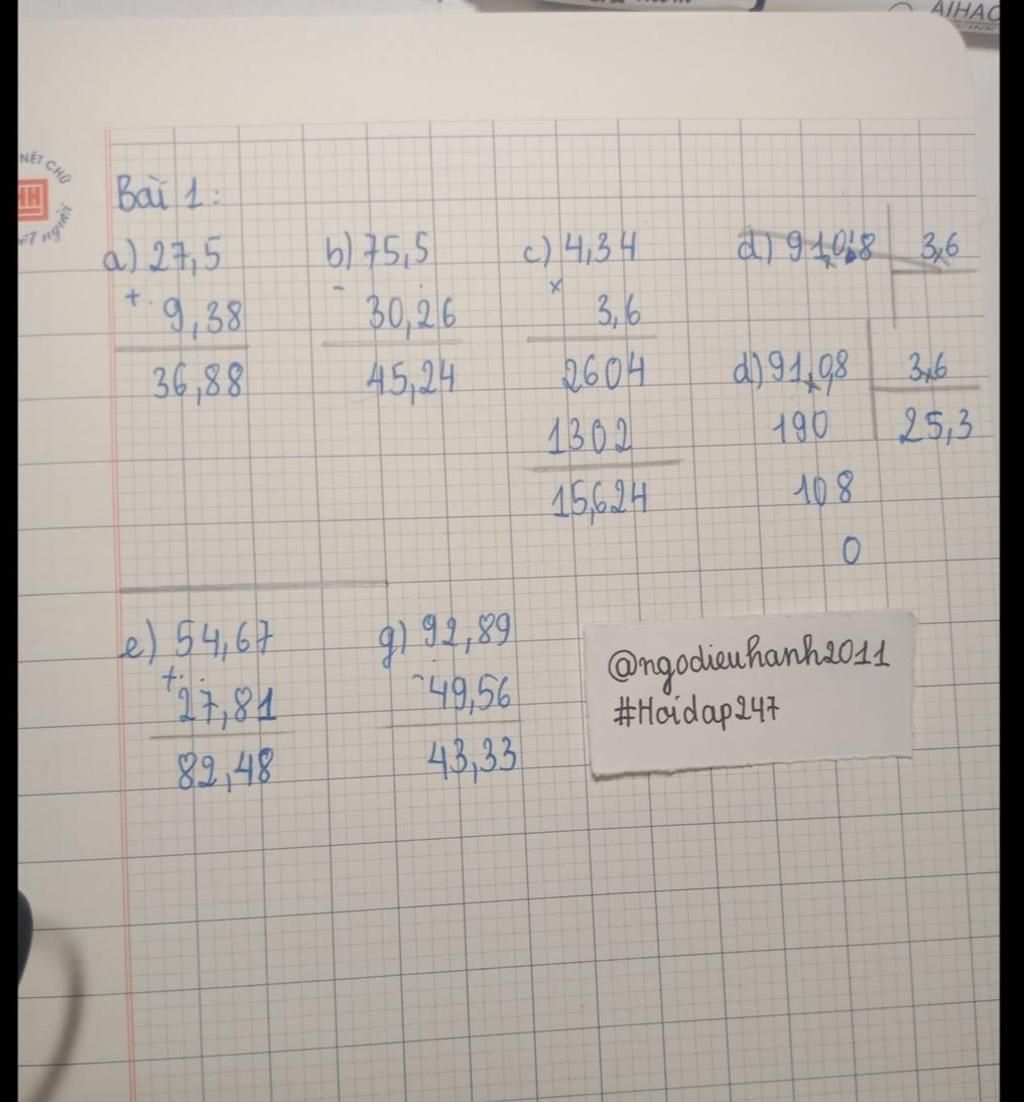 AIHAO
NÉT CHỮ
HH
ết người
Bài 1:
a) 27,5
+ 9,38
36,88
b) 75,5
- 30,26
45,24
c) 4,34
x 3,6
2604
1302
15,624
d) 91,0,8 3,6
d) 91,08 3,6
190 25,3
108
0
e) 54,67
+ 27,81
82,48
g) 92,89
- 49,56
43,33
@ngodieuhanh2011
#Hoidap247